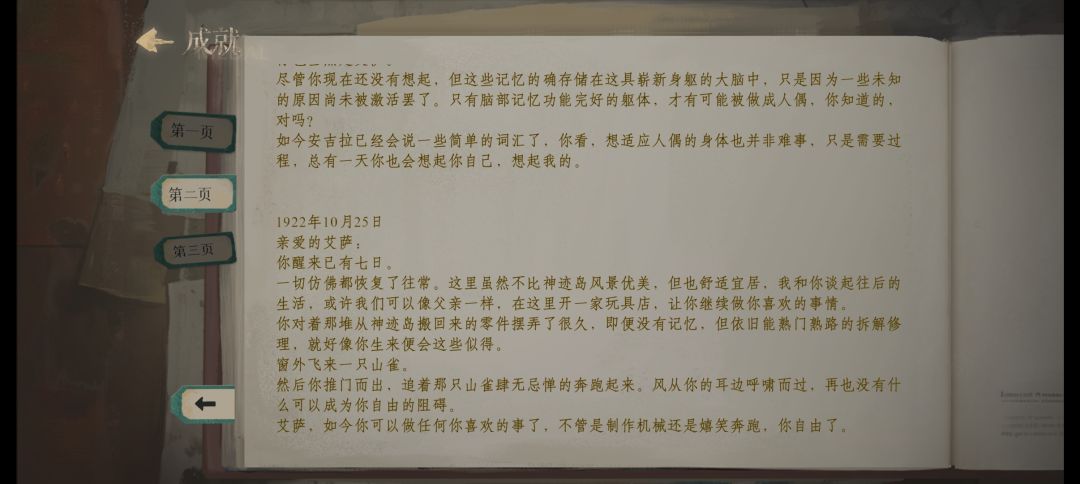 成就
第一页
第二页
第三页
尽管你现在还没有想起，但这些记忆的确存储在这具崭新身躯的大脑中，只是因为一些未知
的原因尚未被激活罢了。只有脑部记忆功能完好的躯体，才有可能被做成人偶，你知道的，
对吗？
如今安吉拉已经会说一些简单的词汇了，你看，想适应人偶的身体也并非难事，只是需要过
程，总有一天你也会想起你自己，想起我的。
1922年10月25日
亲爱的艾萨：
你醒来已有七日。
一切仿佛都恢复了往常。这里虽然不比神迹岛风景优美，但也舒适宜居，我和你谈起往后的
生活，或许我们可以像父亲一样，在这里开一家玩具店，让你继续做你喜欢的事情。
你对着那堆从神迹岛搬回来的零件摆弄了很久，即便没有记忆，但依旧能熟门熟路的拆解修
理，就好像你生来便会这些似得。
窗外飞来一只山雀。
然后你推门而出，追着那只山雀肆无忌惮的奔跑起来。风从你的耳边呼啸而过，再也没有什
么可以成为你自由的阻碍。
艾萨，如今你可以做任何你喜欢的事了，不管是制作机械还是嬉笑奔跑，你自由了。